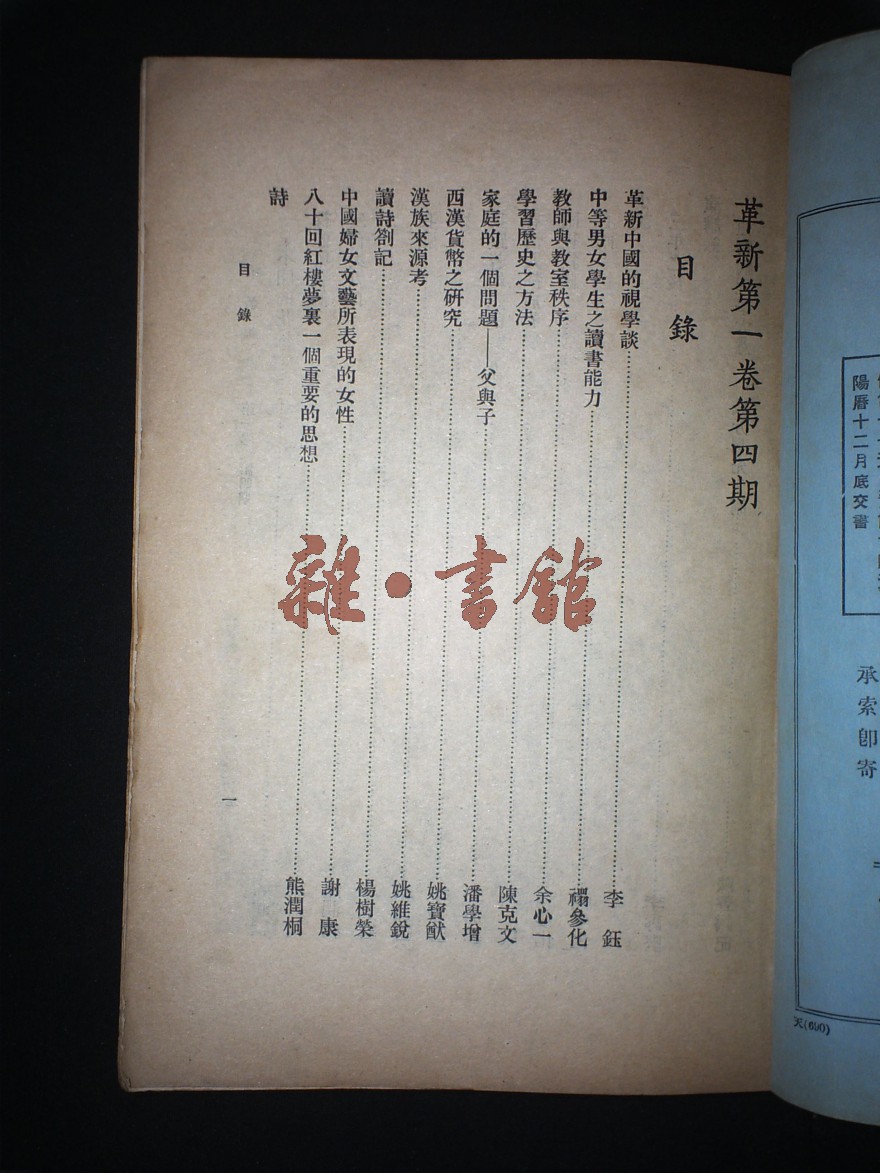 陽曆十二月底交書
承索卽寄
天(690)
革新第一卷第四期
目錄
革新中國的視學談……李 鈺
中等男女學生之讀書能力……禤參化
教師與教室秩序……余心一
學習歷史之方法……陳克文
家庭的一個問題——父與子……潘學增
西漢貨幣之研究……姚寶猷
漢族來源考……姚維銳
讀詩劄記……楊樹榮
中國婦女文藝所表現的女性……謝 康
八十回紅樓夢裏一個重要的思想……熊潤桐
詩
目錄
一
雜·書館